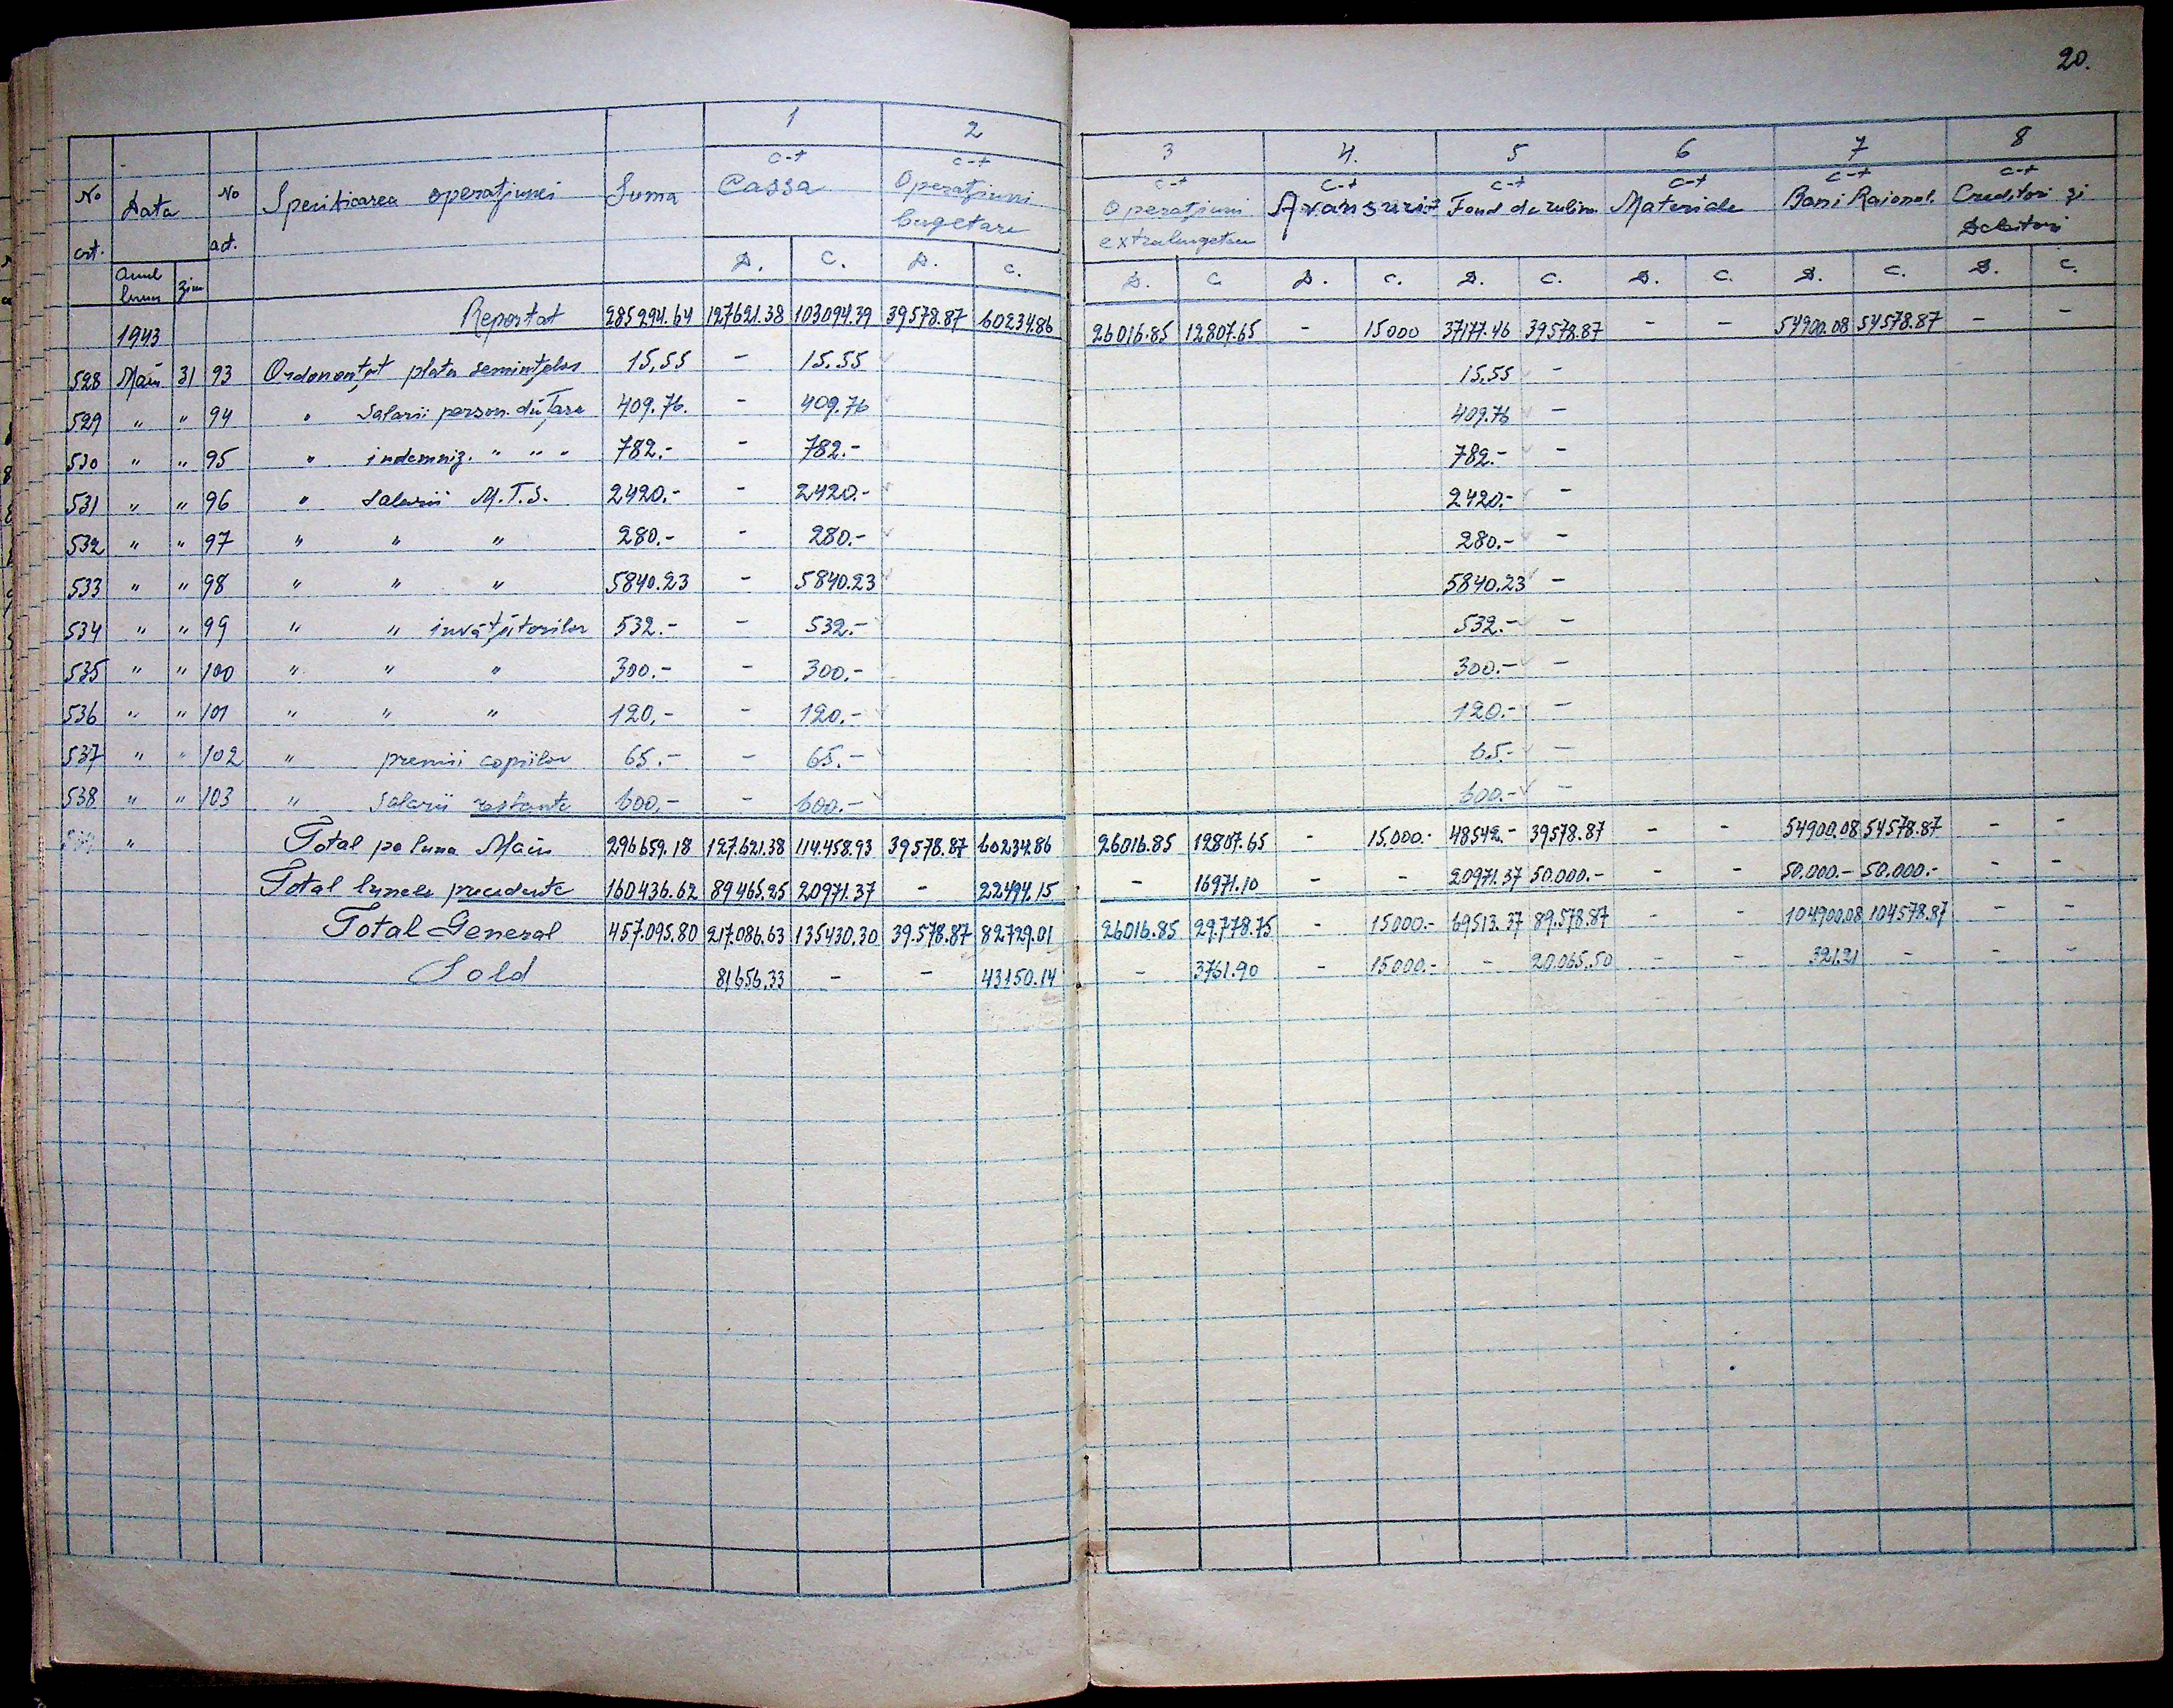 20.
1 2 3 4. 5 6 7 8
c-t c-t c-t c-t c-t c-t c-t c-t
No crt. Data No act. Spesificarea operațiunei Suma Cassa Operațiuni bugetare Operațiuni extrabugetare Avansuri Fond de rulm Materiale Bani Raional. Creditori și Debitori
Anul luna ziua D. C. D. C. D. C D. C. D. C. D. C. D. C. D. C.
1943 Reportat 285294.64 127621.38 103094.39 39578.87 60234.86 26016.85 12807.65 - 15000 37177.46 39578.87 - - 54900.08 54578.87 - -
528 Maiu 31 93 Ordonanțat plata semințelor 15,55 - 15.55 15.55 -
529 " " 94 " Salarii person. din Țara 409.76. - 409.76 409.76 -
530 " " 95 " indemniz. " " " 782.- - 782.- 782.- -
531 " " 96 " Salarii M.T.S. 2420.- - 2420.- 2420.- -
532 " " 97 " " " 280.- - 280.- 280.- -
533 " " 98 " " " 5840.23 - 5840.23 5840.23 -
534 " " 99 " " invățătorilor 532.- - 532.- 532.- -
535 " " 100 " " " 300.- - 300.- 300.- -
536 " " 101 " " " 120.- - 120.- 120.- -
537 " " 102 " premii copiilor 65.- - 65.- 65.- -
538 " " 103 " Salarii restante 600.- - 600.- 600.- -
" Total pe luna Maiu 296659.18 127.621.38 114.458.93 39578.87 60234.86 26016.85 12807.65 - 15.000.- 48542.- 39578.87 - - 54900.08 54578.87 - -
Total lunele precedente 160436.62 89465.25 20971.37 - 22494.15 - 16971.10 - - 20971.37 50.000.- - - 50.000.- 50.000.- - -
Total General 457.095.80 217.086.63 135430.30 39.578.87 82.729.01 26016.85 29.778.75 - 15000.- 69513.37 89.578.87 - - 104900.08 104578.87 - -
Sold 81656,33 - - 43150.14 - 3761.90 - 15000.- - 20.065.50 - - 321.21 - - -